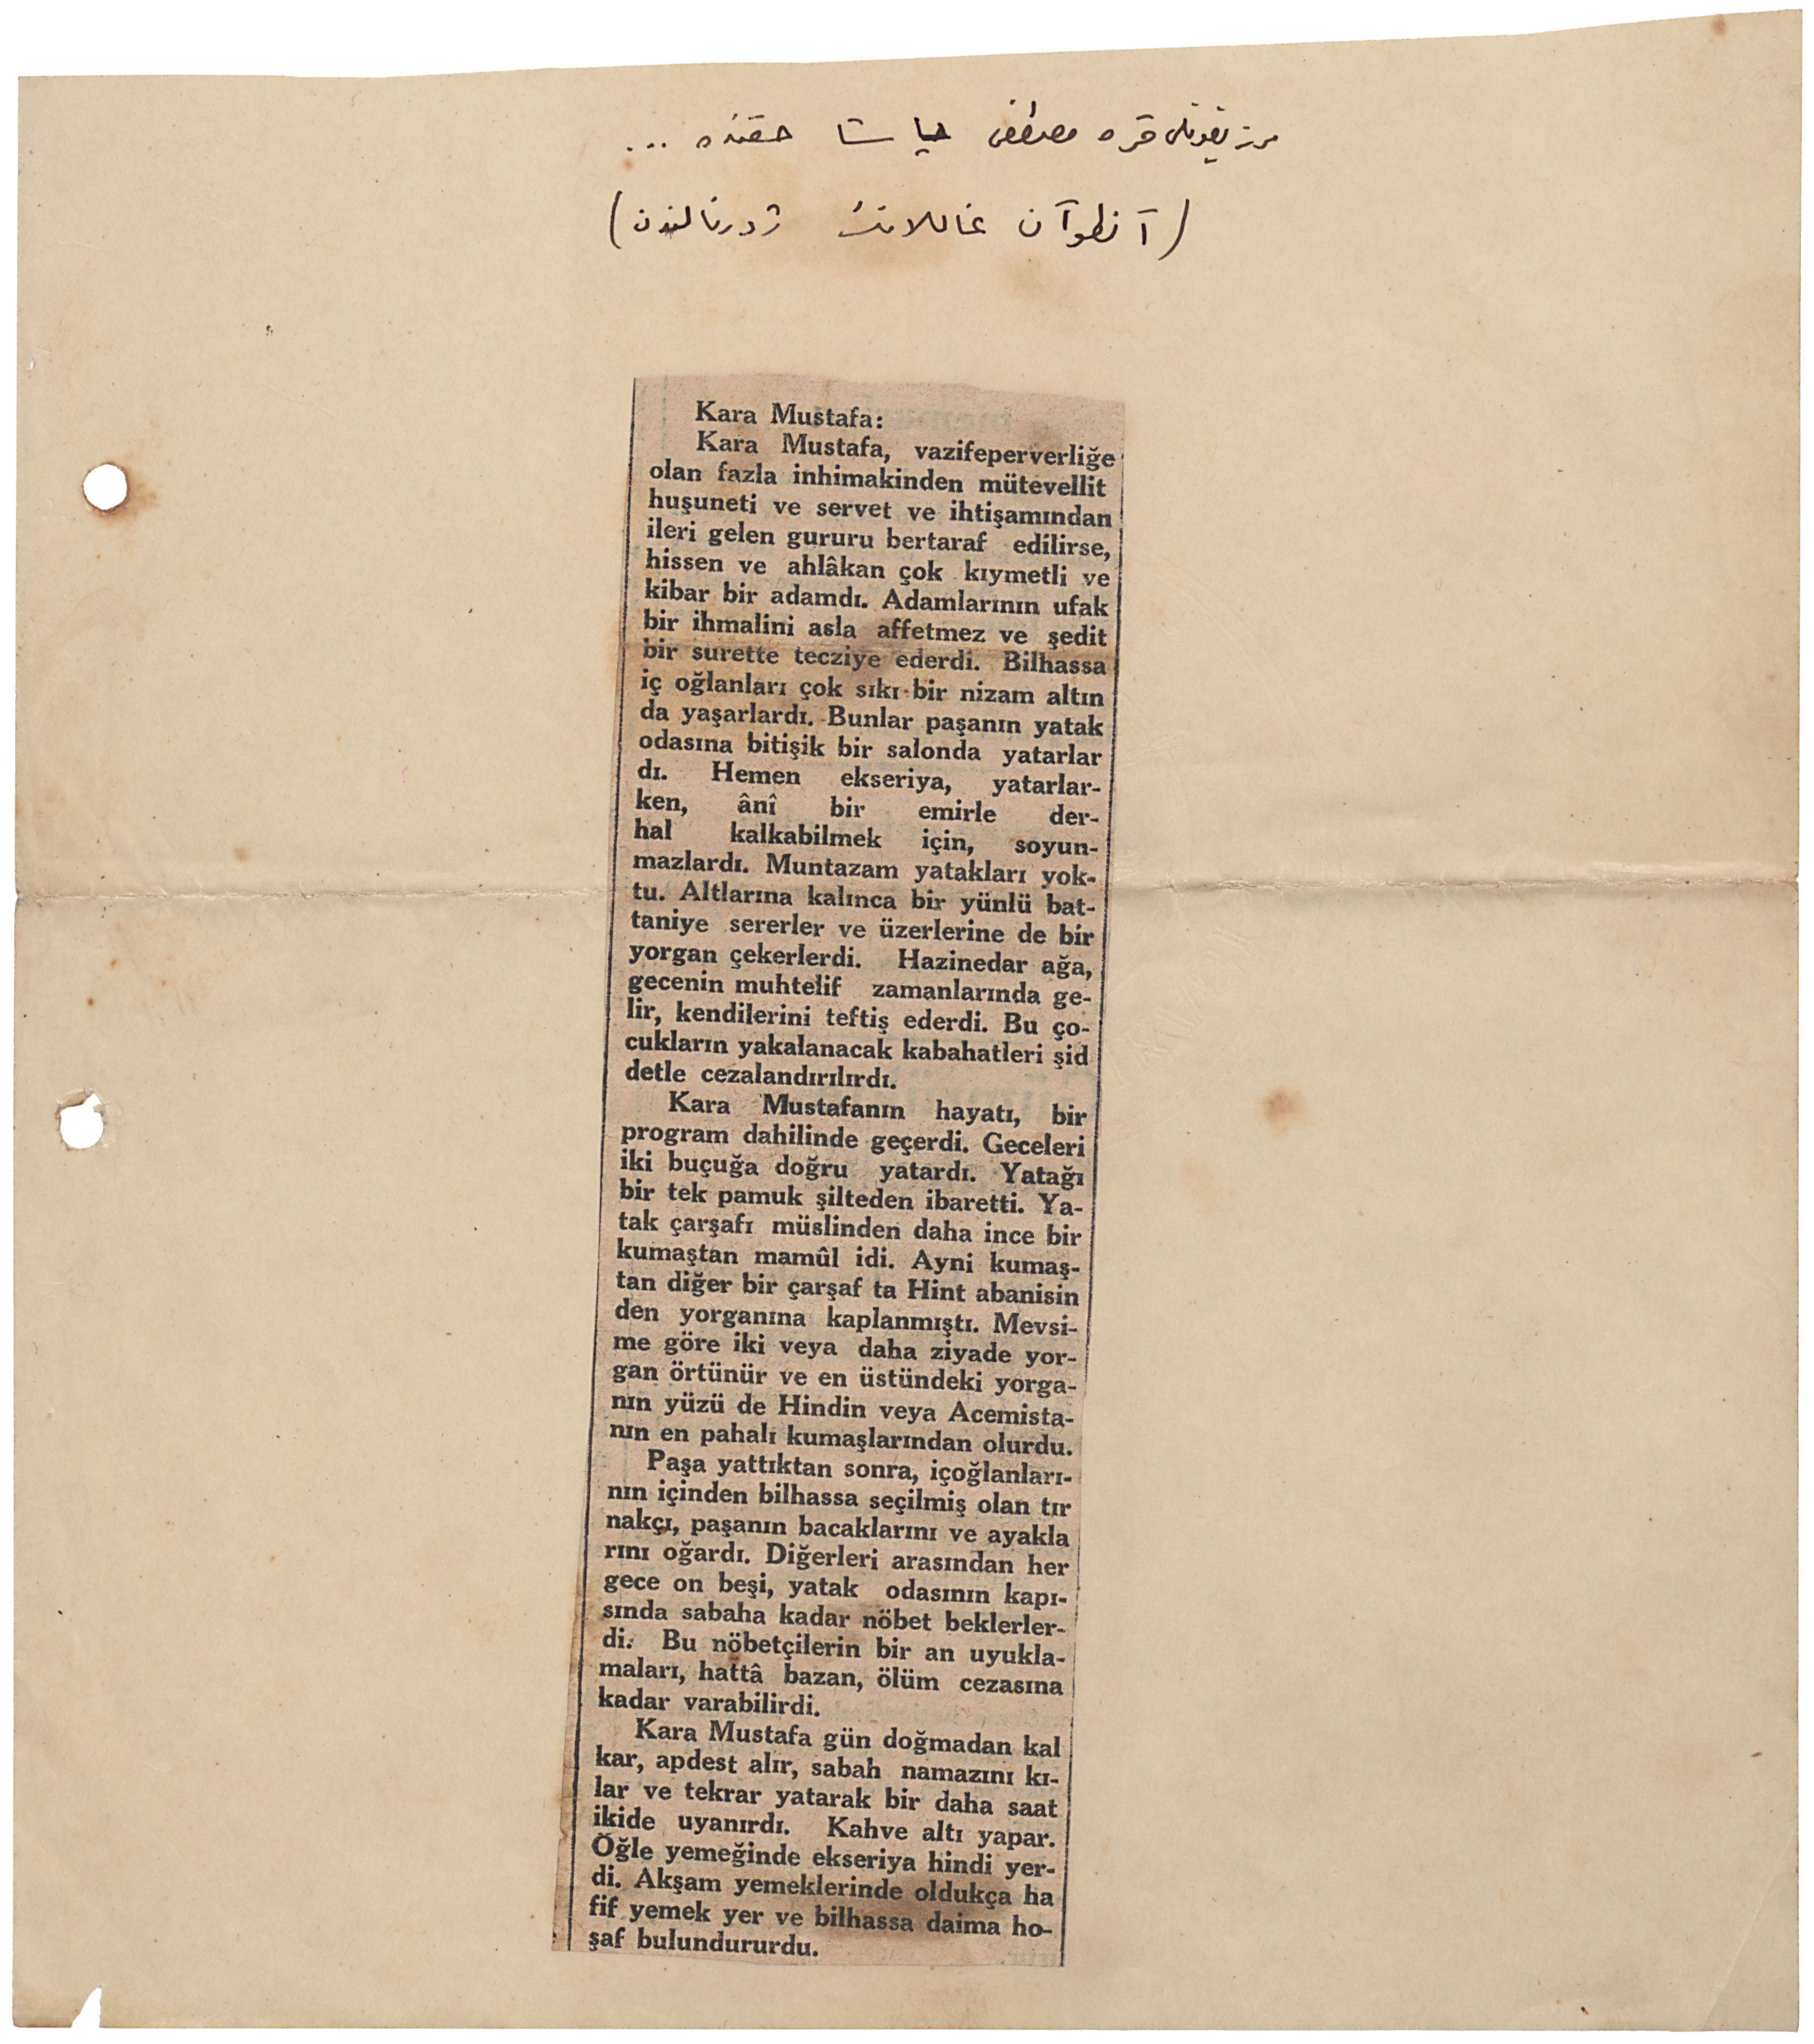 مرزيفونلى قره مصطفى پاشا حقنده ...
(آنطوآن غاللانڭ ژورنالندن)
Kara Mustafa:
Kara Mustafa, vazifeperverliğe
olan fazla inhimakinden mütevellit
huşuneti ve servet ve ihtişamından
ileri gelen gururu bertaraf edilirse,
hissen ve ahlâkan çok kıymetli ve
kibar bir adamdı. Adamlarının ufak
bir ihmalini asla affetmez ve şedit
bir surette tecziye ederdi. Bilhassa
iç oğlanları çok sıkı bir nizam altın
da yaşarlardı. Bunlar paşanın yatak
odasına bitişik bir salonda yatarlar
dı. Hemen ekseriya, yatarlar-
ken, ânî bir emirle der-
hal kalkabilmek için, soyun-
mazlardı. Muntazam yatakları yok-
tu. Altlarına kalınca bir yünlü bat-
taniye sererler ve üzerlerine de bir
yorgan çekerlerdi. Hazinedar ağa,
gecenin muhtelif zamanlarında ge-
lir, kendilerini teftiş ederdi. Bu ço-
cukların yakalanacak kabahatleri şid
detle cezalandırılırdı.
Kara Mustafanın hayatı, bir
program dahilinde geçerdi. Geceleri
iki buçuğa doğru yatardı. Yatağı
bir tek pamuk şilteden ibaretti. Ya-
tak çarşafı müslinden daha ince bir
kumaştan mamûl idi. Ayni kumaş-
tan diğer bir çarşaf ta Hint abanisin
den yorganına kaplanmıştı. Mevsi-
me göre iki veya daha ziyade yor-
gan örtünür ve en üstündeki yorga-
nın yüzü de Hindin veya Acemista-
nın en pahalı kumaşlarından olurdu.
Paşa yattıktan sonra, içoğlanları-
nın içinden bilhassa seçilmiş olan tır
nakçı, paşanın bacaklarını ve ayakla
rını oğardı. Diğerleri arasından her
gece on beşi, yatak odasının kapı-
sında sabaha kadar nöbet beklerler-
di. Bu nöbetçilerin bir an uyukla-
maları, hattâ bazan, ölüm cezasına
kadar varabilirdi.
Kara Mustafa gün doğmadan kal
kar, apdest alır, sabah namazını kı-
lar ve tekrar yatarak bir daha saat
ikide uyanırdı. Kahve altı yapar.
Öğle yemeğinde ekseriya hindi yer-
di. Akşam yemeklerinde oldukça ha
fif yemek yer ve bilhassa daima ho-
şaf bulundururdu.